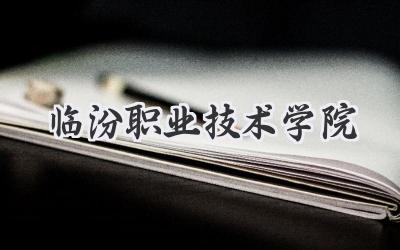 临汾职业技术学院